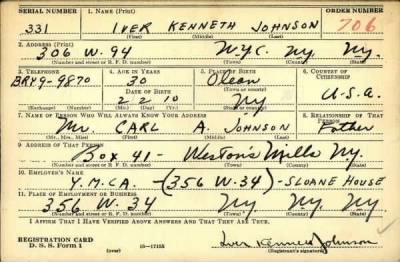 SERIAL NUMBER 1. NAME (Print) ORDER NUMBER
331 IVER KENNETH JOHNSON 706
(First) (Middle) (Last)
2. ADDRESS (Print)
306 W. 94 N.Y.C. NY. NY.
(Number and street or R. F. D. number) (Town) (County) (State)
3. TELEPHONE 4. AGE IN YEARS 5. PLACE OF BIRTH 6. COUNTRY OF CITIZENSHIP
BRY. 9-9870 30 Olean U.S.A.
DATE OF BIRTH (Town or county)
2 2 10 NY
(Exchange) (Number) (Mo.) (Day) (Yr.) (State or country)
7. NAME OF PERSON WHO WILL ALWAYS KNOW YOUR ADDRESS 8. RELATIONSHIP OF THAT PERSON
Mr. CARL A. JOHNSON Father
(Mr., Mrs., Miss) (First) (Middle) (Last)
9. ADDRESS OF THAT PERSON
Box 41 - Westons Mills NY.
(Number and street or R. F. D. number) (Town) (County) (State)
10. EMPLOYER'S NAME
Y.M.C.A. - (356 W. 34) - SLOANE HOUSE
11. PLACE OF EMPLOYMENT OR BUSINESS
356 W. 34 NY NY. NY.
(Number and street or R. F. D. number) (Town) (County) (State)
I AFFIRM THAT I HAVE VERIFIED ABOVE ANSWERS AND THAT THEY ARE TRUE.
REGISTRATION CARD
D. S. S. Form 1 (over) 16-17105 Iver Kenneth Johnson
(Registrant's signature)